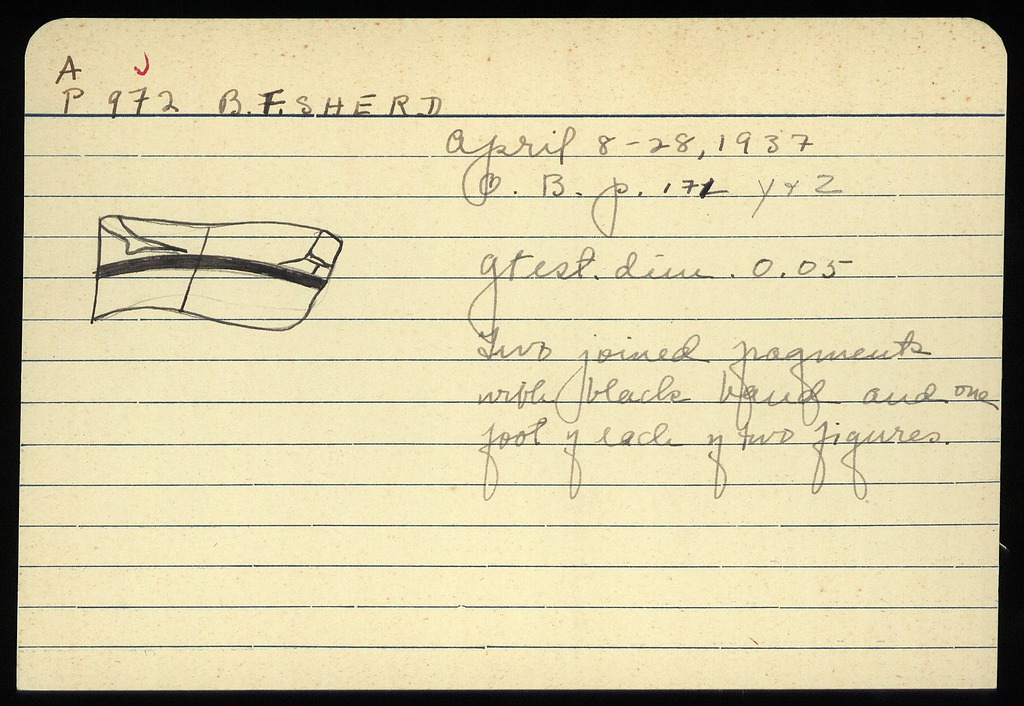 A
P 972 B.F. SHERD
April 8-28, 1937
B. p. 171 y+z
gtest. dim. 0.05
Two joined fragments
with black band and one
foot of each of two figures.